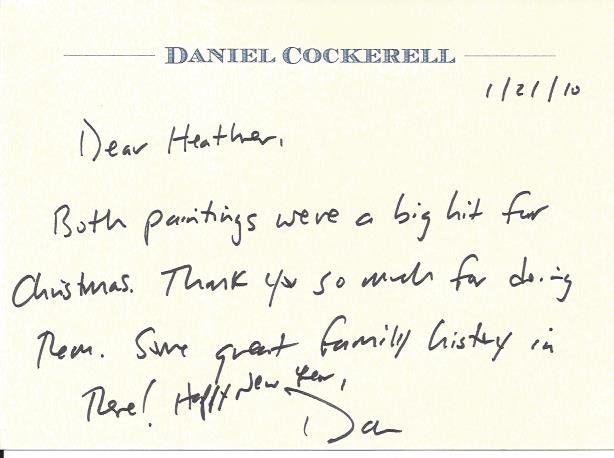 DANIEL COCKERELL
1/21/10
Dear Heather,
Both paintings were a big hit for
Christmas. Thank you so much for doing
them. Some great family history in
there! Happy New Year,
Dan